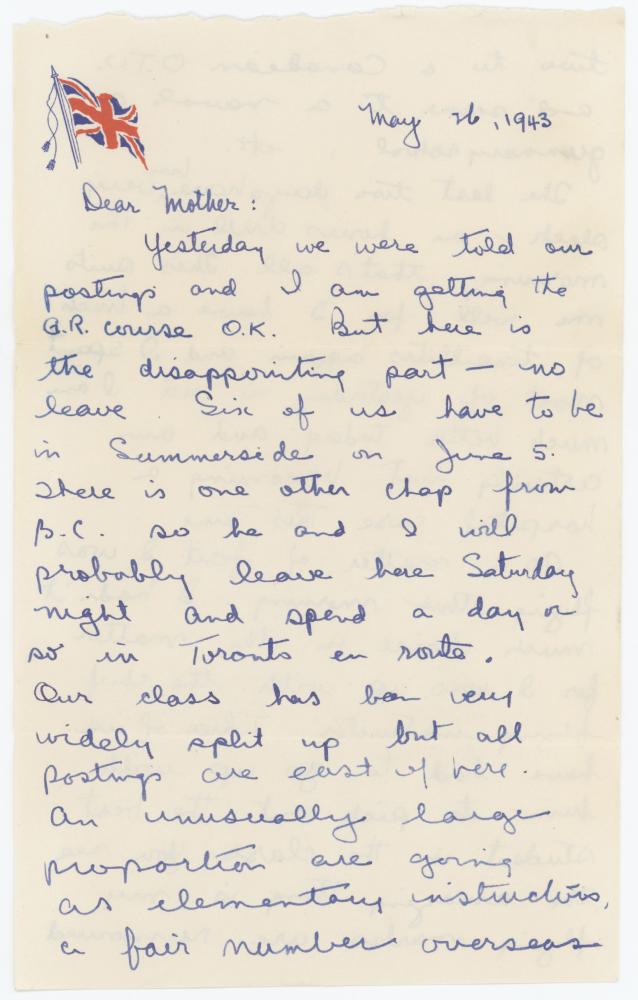 May 26, 1943
Dear Mother:
Yesterday we were told our
postings and I am getting the
G.R. course O.K. But here is
the disappointing part — no
leave. Six of us have to be
in Summerside on June 5.
There is one other chap from
B.C. so he and I will
probably leave here Saturday
night and spend a day or
so in Toronto en route.
Our class has been very
widely split up but all
postings are east of here.
An unusually large
proportion are going
as elementary instructors,
a fair number overseas